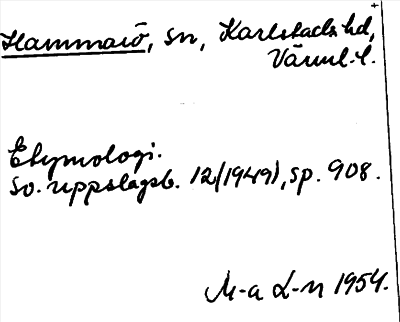 Hammarö, sn, Karlstads hd,
Värml. l.
Etymologi.
Sv. uppslagsb. 12(1949), sp. 908.
M-a L-n 1954.